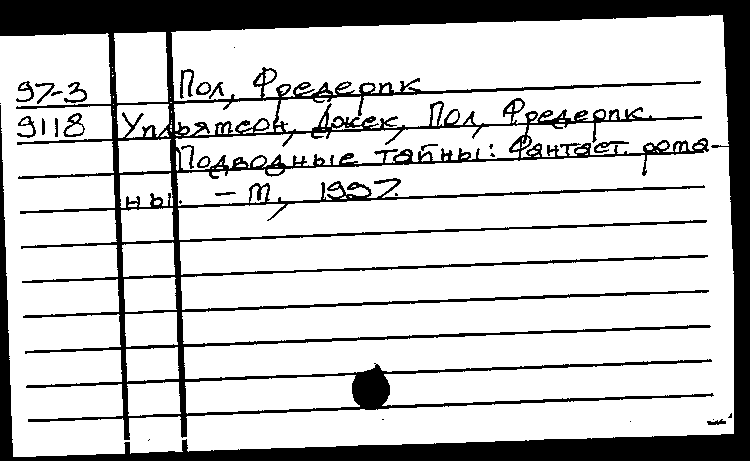 97-3 Пол, Фредерик
9118 Уильямсон, Джек, Пол, Фредерик.
Подводные тайны: Фантаст. рома-
ны. - М., 1997.